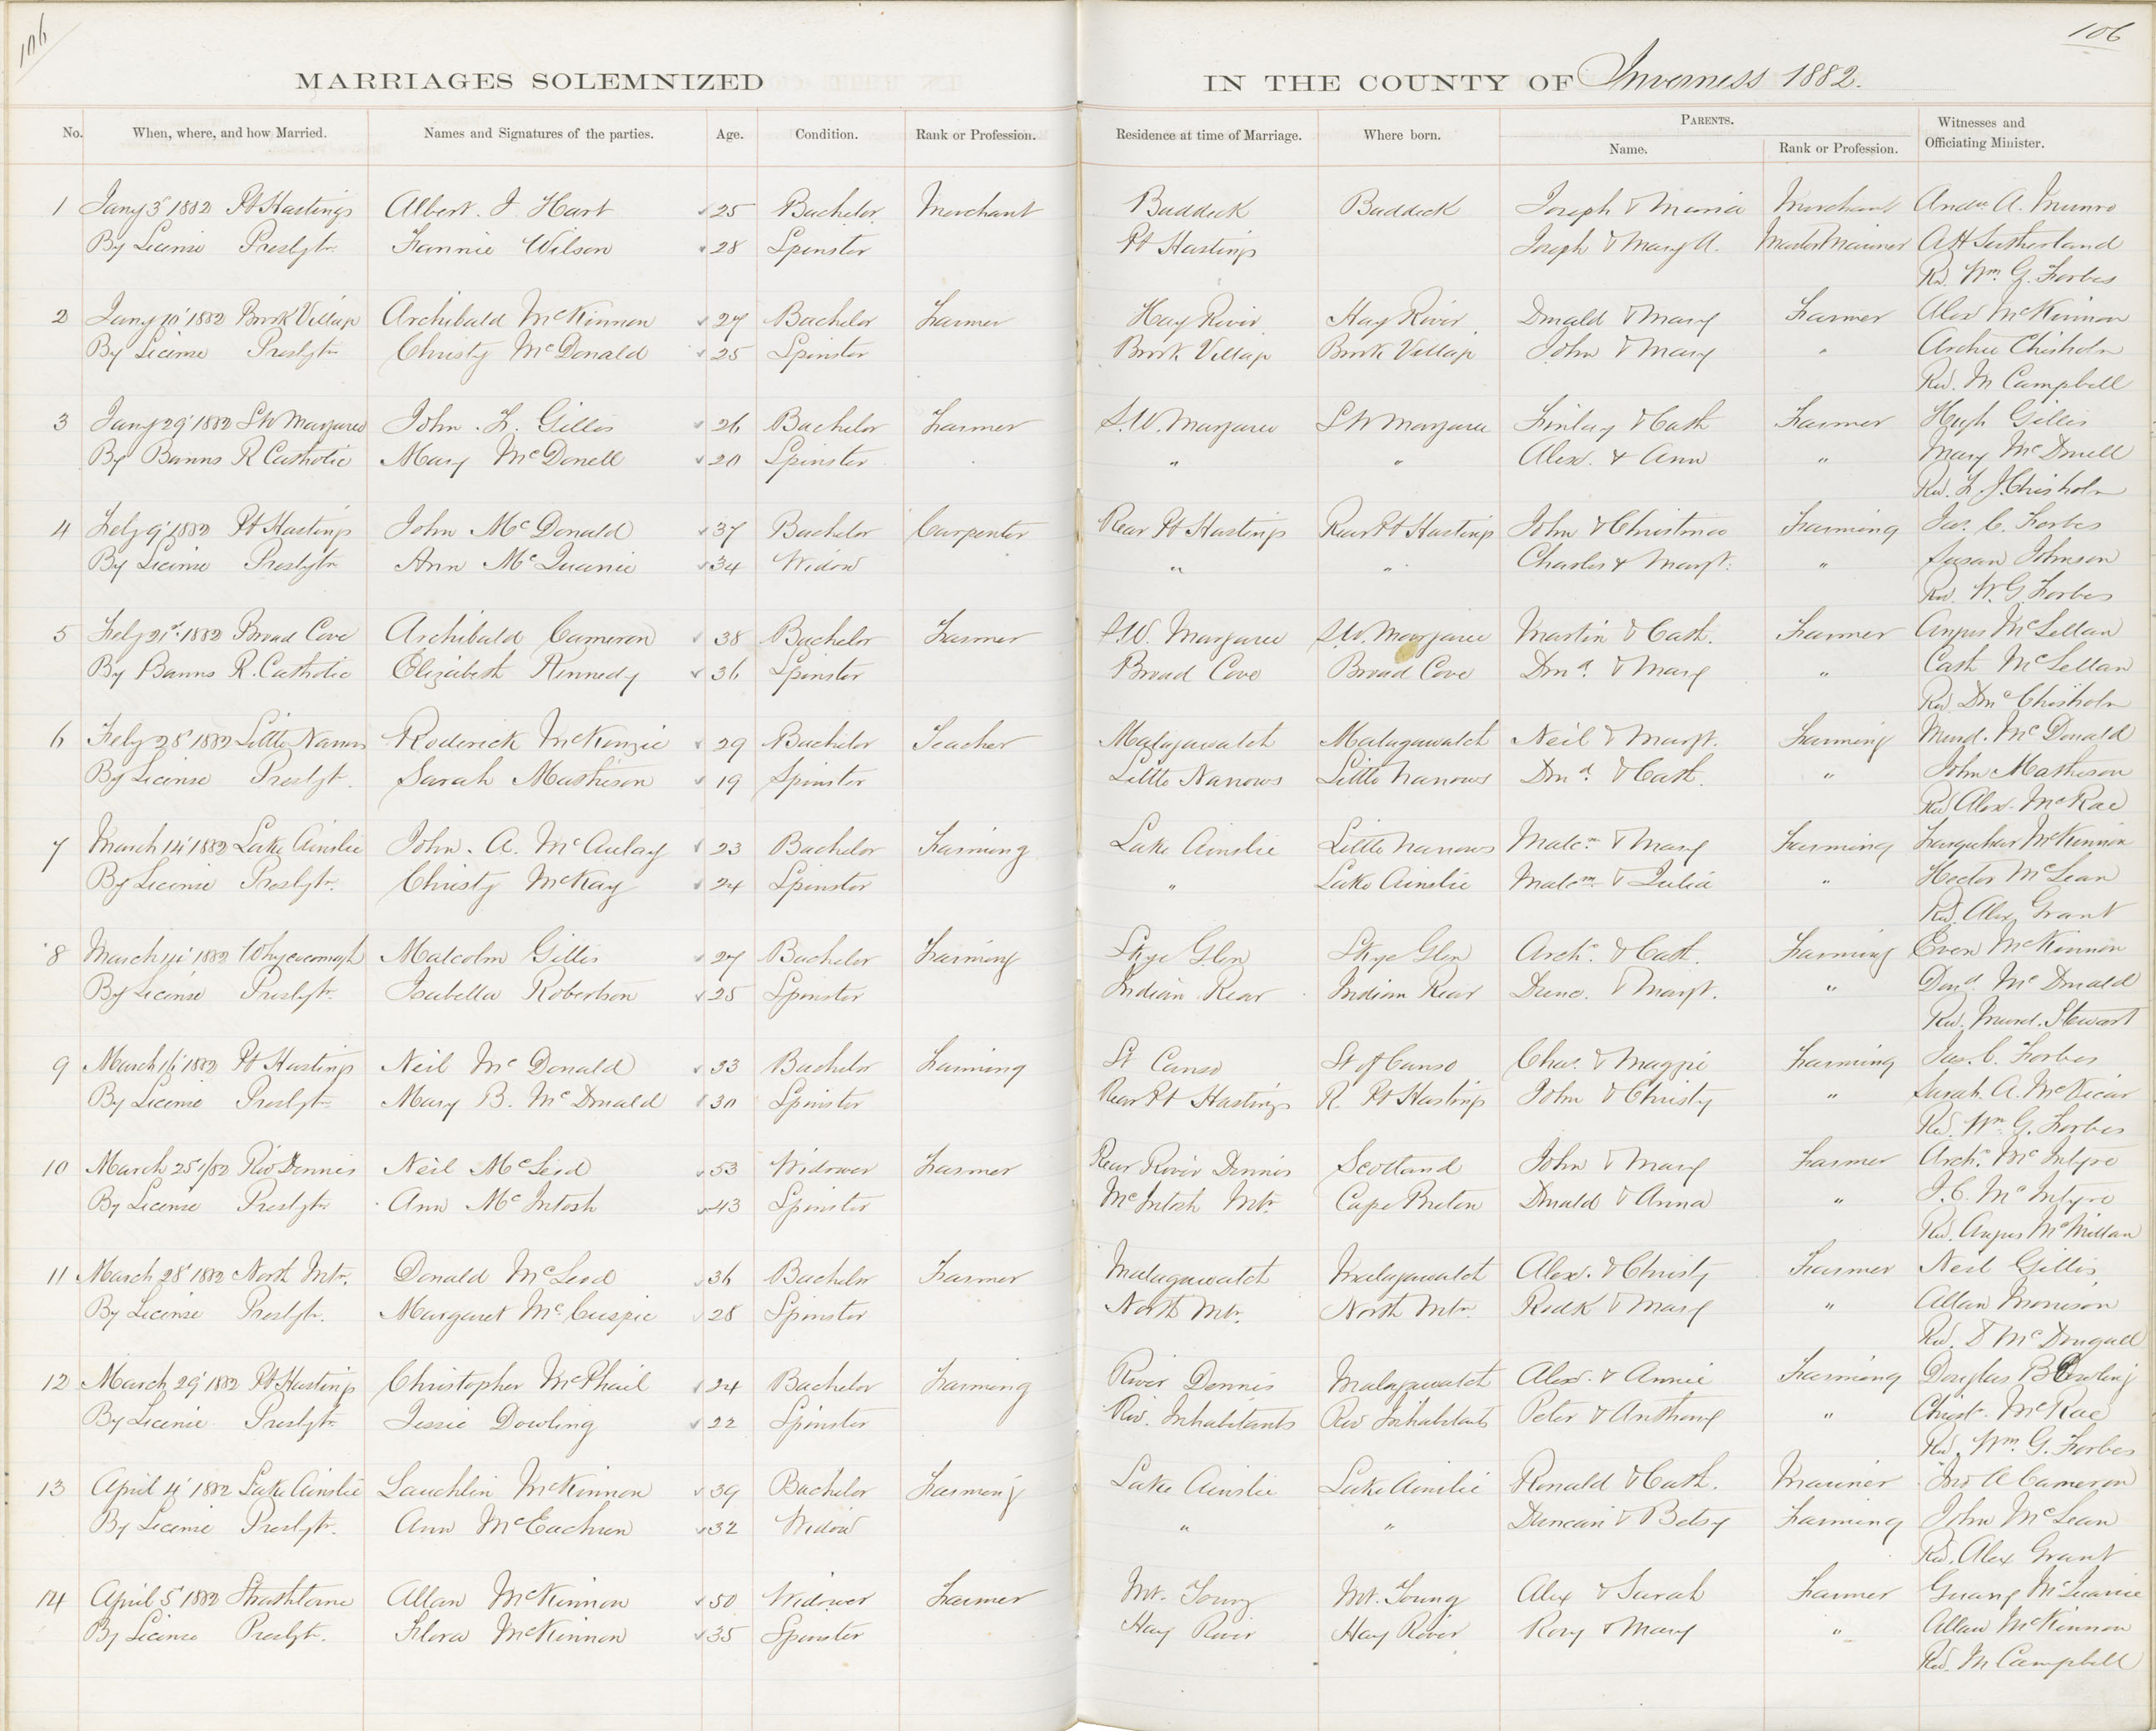 106
106
MARRIAGES SOLEMNIZED IN THE COUNTY OF Inverness 1882.
No. When, where, and how Married. Names and Signatures of the parties. Age. Condition. Rank or Profession. Residence at time of Marriage. Where born. PARENTS. Name. Rank or Profession. Witnesses and Officiating Minister.
1 Jany 3" 1882 Pt Hastings Albert. I Hart 25 Bachelor Merchant Baddeck Baddeck Joseph & Maria Merchant Andw A. Munro
By License Presbytn Fannie Wilson 28 Spinster Pt Hastings Joseph & Mary A. Master Mariner A H Sutherland
Rd. Wm G. Forbes
2 Jany 10" 1882 Brook Village Archibald McKinnon 27 Bachelor Farmer Hay River Hay River Donald & Mary Farmer Alex McKinnon
By License Presbytn Christy McDonald 25 Spinster Brook Village Brook Village John & Mary " Archie Chisholm
Rev. M Campbell
3 Jany 29" 1882 S W Margaree John. F. Gillis 26 Bachelor Farmer S.W. Margaree S W Margaree Finlay & Cath Farmer Hugh Gillis
By Banns R Catholic Mary McDonell 20 Spinster " " Alex. & Ann " Mary McDonell
Rev. F. J. Chisholm
4 Feby 9" 1882 Pt Hastings John McDonald 37 Bachelor Carpenter Rear Pt Hastings Rear Pt Hastings John & Christina Farming Jas. C. Forbes
By License Presbytn Ann McQuarrie 34 Widow " " Charles & Margt. " Susan Johnson
Rev. W. G. Forbes
5 Feby 21st 1882 Broad Cove Archibald Cameron 38 Bachelor Farmer S.W. Margaree S.W. Margaree Martin & Cath. Farmer Angus McLellan
By Banns R. Catholic Elizabeth Kennedy 36 Spinster Broad Cove Broad Cove Dond. & Mary " Cath McLellan
Rev Dond Chisholm
6 Feby 28" 1882 Little Narrows Roderick McKenzie 29 Bachelor Teacher Malagawatch Malagawatch Neil & Margt. Farming Murd. McDonald
By License Presbyt. Sarah Matheson 19 Spinster Little Narrows Little Narrows Dond. & Cath. " John Matheson
Rev Alex. McRae
7 March 14" 1882 Lake Ainslie John. A. McAulay 23 Bachelor Farming Lake Ainslie Little Narrows Malcm & Mary Farming Farquhar McKinnon
By License Presbytn. Christy McKay 24 Spinster " Lake Ainslie Malcm & Julia " Hector McLean
Rd. Alex Grant
8 March 14" 1882 Whycocomagh Malcolm Gillis 27 Bachelor Farming Skye Glen Skye Glen Archd. & Cath. Farming Even McKinnon
By License Presbytn. Isabella Robertson 25 Spinster Indian Rear Indian Rear Dunc. & Margt. " Dond McDonald
Rev. Murd. Stewart
9 March 16" 1882 Pt Hastings Neil McDonald 33 Bachelor Farming St Canso St of Canso Chas. & Maggie Farming Jas. C. Forbes
By License Presbytn. Mary B. McDonald 30 Spinster Rear Pt Hastings R. Pt Hastings John & Christy " Sarah. A. McVicar
Rd. Wm G. Forbes
10 March 25" /82 Riv Dennis Neil McLeod 53 Widower Farmer Rear River Dennis Scotland John & Mary Farmer Archd. McIntyre
By License Presbytn Ann McIntosh 43 Spinster McIntosh Mtn Cape Breton Donald & Anna " J. C. McIntyre
Rd. Angus McMillan
11 March 28" 1882 North Mtn. Donald McLeod 36 Bachelor Farmer Malagawatch Malagawatch Alex. & Christy Farmer Neil Gillis
By License Presbytn. Margaret McCuspic 28 Spinster North Mtn. North Mtn Rodk & Mary " Allan Morrison
Rev. D McDougall
12 March 29" 1882 Pt Hastings Christopher McPhail 24 Bachelor Farming River Dennis Malagawatch Alex. & Annie Farming Douglas B Dowling
By License Presbytn. Jessie Dowling 22 Spinster Riv. Inhabitants Riv Inhabitants Peter & Anthony " Christr. McRae
Rd. Wm. G. Forbes
13 April 4" 1882 Lake Ainslie Lauchlin McKinnon 39 Bachelor Farming Lake Ainslie Lake Ainslie Ronald & Cath. Mariner Jno A Cameron
By License Presbytn. Ann McEachren 32 Widow " " Duncan & Betsy Farming John McLean
Rd. Alex Grant
14 April 5" 1882 Strathlorne Allan McKinnon 50 Widower Farmer Mt. Young Mt. Young Alex & Sarah Farmer McQuarrie
By License Presbytn. Flora McKinnon 35 Spinster Hay River Hay River Rory & Mary " Allan McKinnon
Rd. M Campbell